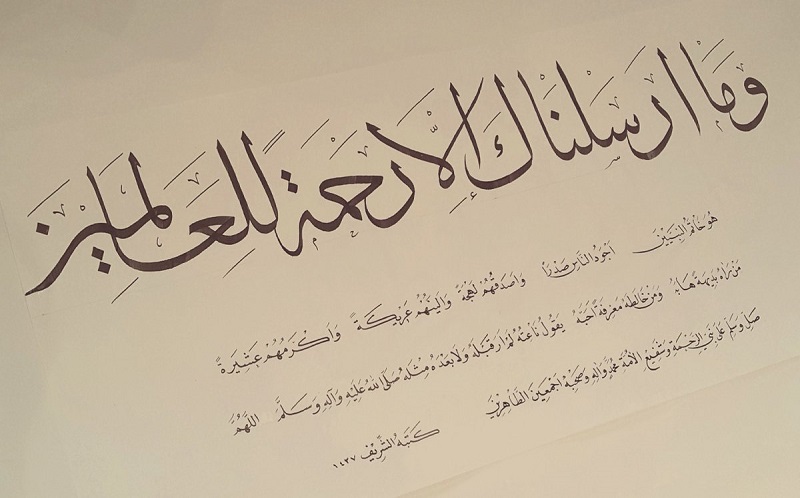 وَمَا أَرْسَلْنَاكَ إِلَّا رَحْمَةً لِلْعَالَمِينَ
هُوَ خَاتَمُ النَّبِيِّينَ أَجْوَدُ النَّاسِ صَدْرًا وَأَصْدَقُهُمْ لَهْجَةً وَأَلْيَنُهُمْ عَرِيكَةً وَأَكْرَمُهُمْ عِشْرَةً
مَنْ رَآهُ بَدِيهَةً هَابَهُ وَمَنْ خَالَطَهُ مَعْرِفَةً أَحَبَّهُ يَقُولُ نَاعِتُهُ لَمْ أَرَ قَبْلَهُ وَلَا بَعْدَهُ مِثْلَهُ صَلَّى اللهُ عَلَيْهِ وَآلِهِ وَسَلَّمَ اللَّهُمَّ
صَلِّ وَسَلِّمْ عَلَى نَبِيِّ الرَّحْمَةِ وَشَفِيعِ الْأُمَّةِ مُحَمَّدٍ وَآلِهِ وَصَحْبِهِ أَجْمَعِينَ الطَّاهِرِينَ
كَتَبَهُ الشَّرِيفْ ١٤٣٧